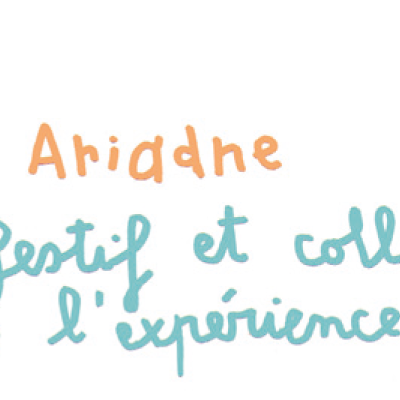 Ariadne
festif et coll
l'expérience